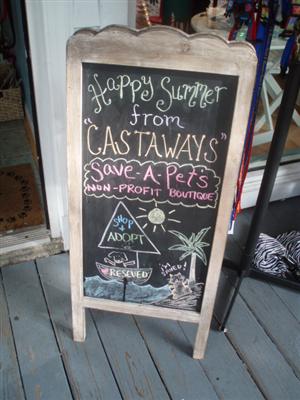 Happy Summer
from
"CASTAWAYS"
Save-A-Pet's
NON-PROFIT BOUTIQUE
SHOP
+
ADOPT
RESCUED